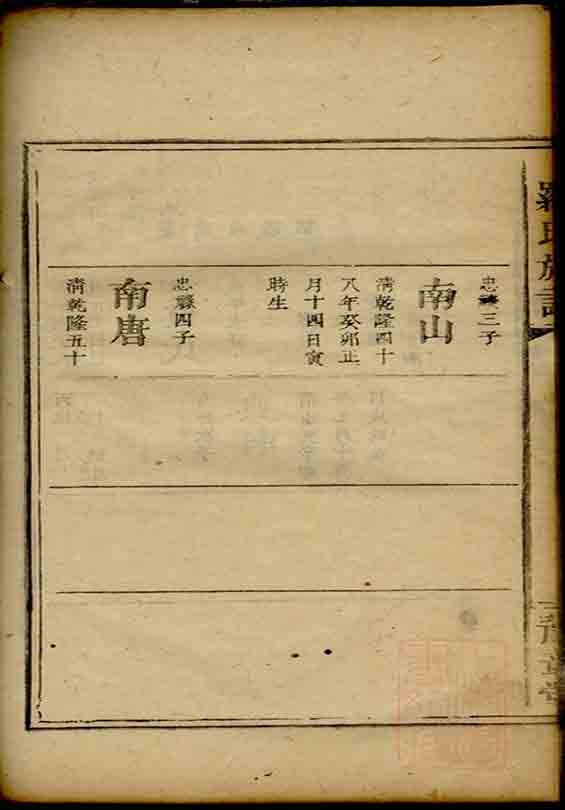 羅氏族譜
忠祿三子
南山
清乾隆四十
八年癸卯正
月十四日寅
時生
忠祿四子
南唐
清乾隆五十